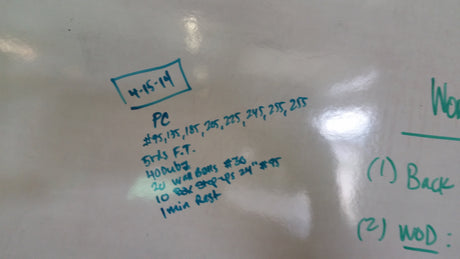 4-15-14
PC
#95, 135, 185, 205, 225, 245, 255, 255
5rds F.T.
40 Dubz
20 wall Balls #30
10 Box Step-ups 24" #95
1 min Rest
Wo
(1) Back
(2) WOD: